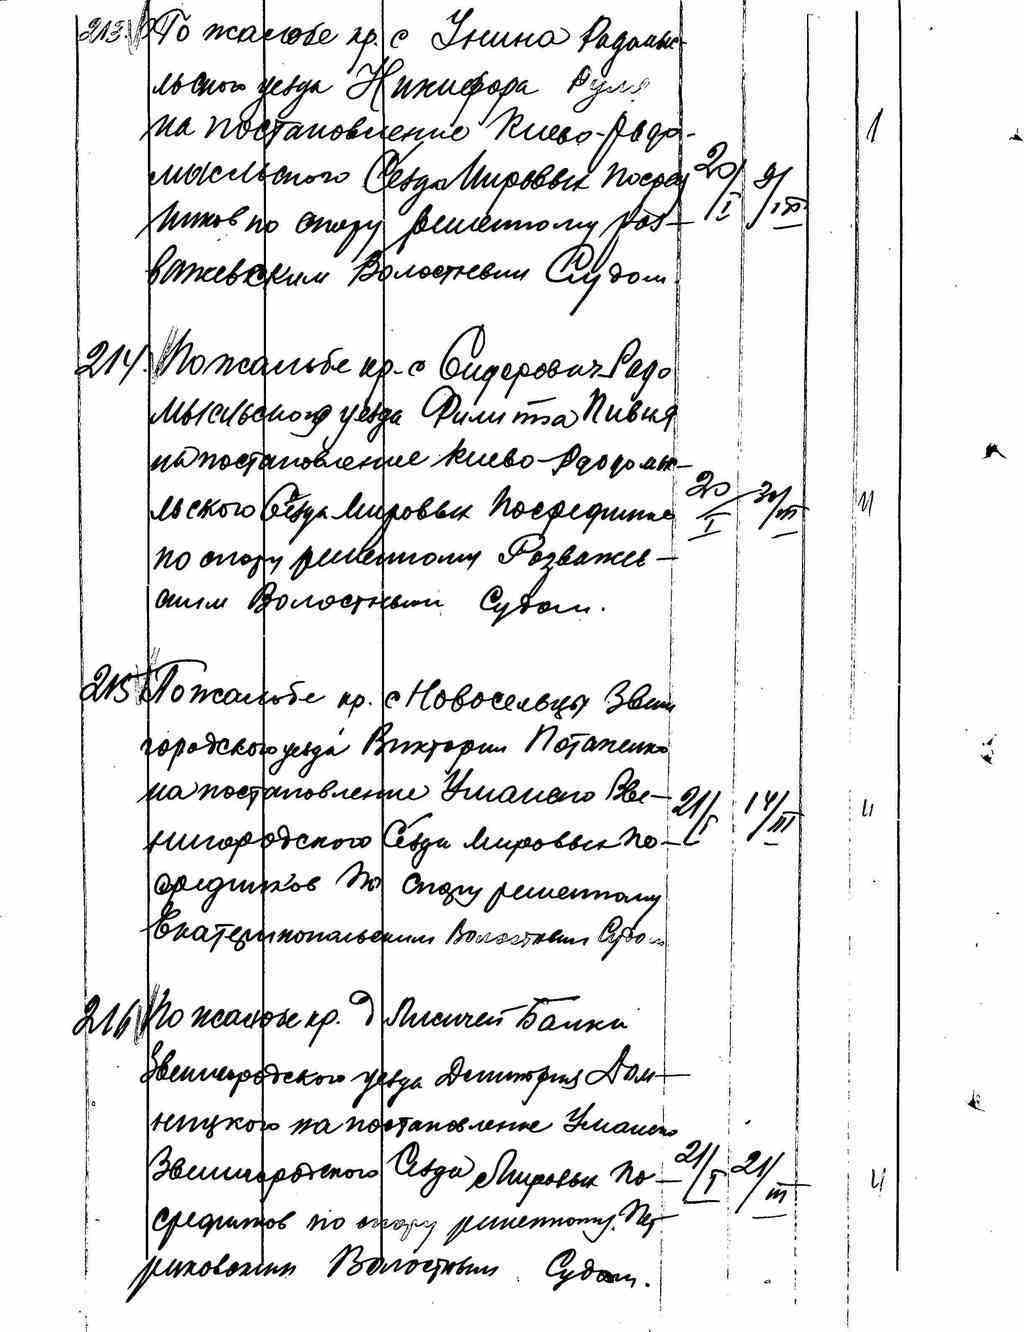 213. По жалобе кр. с Унина Радомы-
льского уезда Никифора Руля
на постановление Киево-Радо-
мысльского Сезда Мировых Посред
ников по спору решенному раз-
важевским Волостным Судом.
20/I 9/III 1
214. По жалобе кр. с Сидорович Радо
мысльского уезда Филипа Пивня
на постановление Киево-Радомы-
льского Сезда Мировых Посредника
по спору решенному Розважев-
ским Волостным Судом.
20/I 30/III 4
215 По жалобе кр. с Новосельцы Звени
городского уезда Виктории Потапенко
на постановление Уманско Зве-
нигородского Сезда Мировых По-
средников по спору решенному
Екатеринопольским Волостным Судом
21/I 14/III 4
216 По жалобе кр. д Лисичей Балки
Звенигородского уезда Дмитрия Дом-
ницкого на постановление Уманско
Звенигородского Сезда Мировых По-
средников по спору решенному
Волостным Судом.
21/I 21/III 4